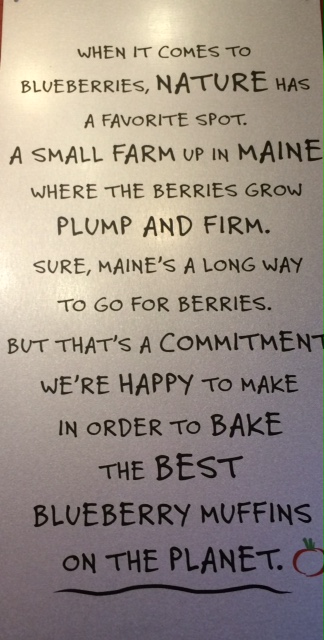 WHEN IT COMES TO
BLUEBERRIES, NATURE HAS
A FAVORITE SPOT.
A SMALL FARM UP IN MAINE
WHERE THE BERRIES GROW
PLUMP AND FIRM.
SURE, MAINE'S A LONG WAY
TO GO FOR BERRIES.
BUT THAT'S A COMMITMENT
WE'RE HAPPY TO MAKE
IN ORDER TO BAKE
THE BEST
BLUEBERRY MUFFINS
ON THE PLANET.